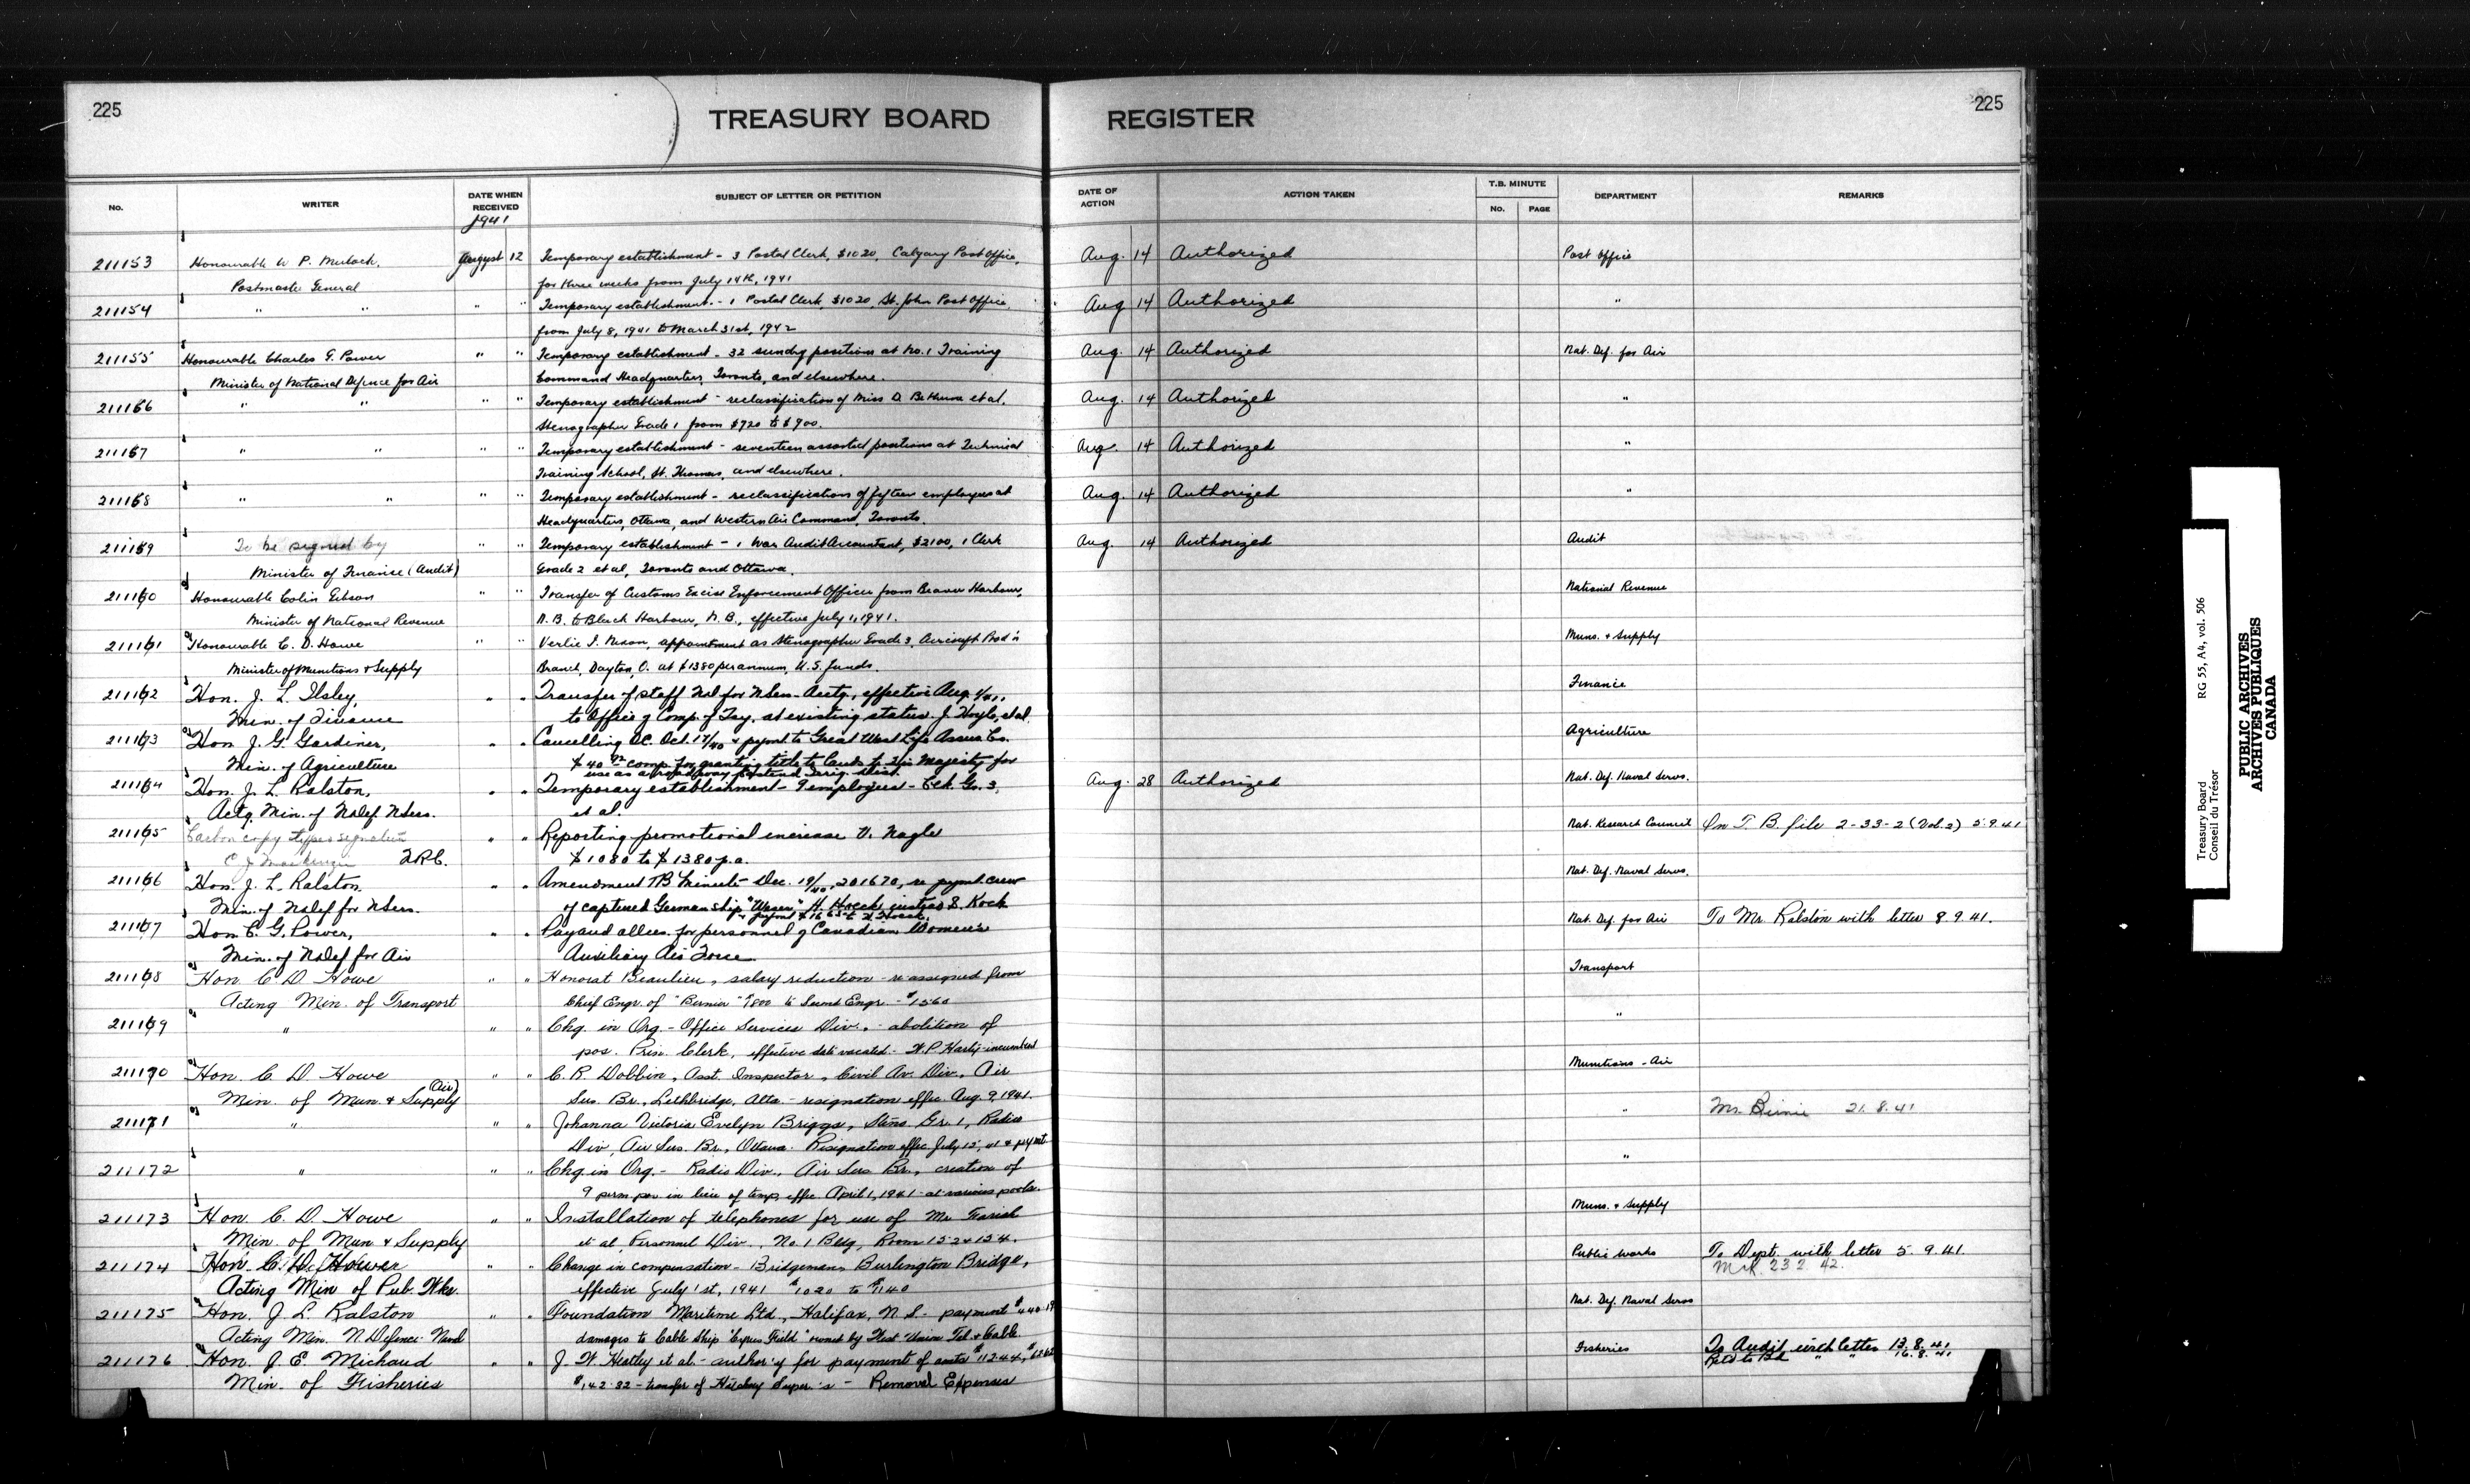 225
TREASURY BOARD REGISTER
225
No.
WRITER
DATE WHEN RECEIVED
SUBJECT OF LETTER OR PETITION
DATE OF ACTION
ACTION TAKEN
T.B. MINUTE
No.
PAGE
DEPARTMENT
REMARKS
1941
211153 Honourable W. P. Mulock, August 12 Temporary establishment - 3 Postal Clerk, $1020, Calgary Post Office, Aug. 14 Authorized Post Office
Postmaster General for three weeks from July 14th, 1941
211154 " " " " Temporary establishment - 1 Postal Clerk, $1020, St. John Post Office, Aug 14 Authorized "
from July 8, 1941 to March 31st, 1942
211155 Honourable Charles G. Power " " Temporary establishment - 32 sundry positions at No. 1 Training Aug. 14 Authorized Nat. Def. for Air
Minister of National Defence for Air Command Headquarters, Toronto, and elsewhere.
211156 " " " " Temporary establishment - reclassification of Miss D. Bethune et al, Aug. 14 Authorized "
Stenographer Grade 1 from $720 to $900.
211157 " " " " Temporary establishment - seventeen assorted positions at Technical Aug. 14 Authorized "
Training School, St. Thomas, and elsewhere.
211158 " " " " Temporary establishment - reclassifications of fifteen employees at Aug. 14 Authorized "
Headquarters, Ottawa, and Western Air Command, Toronto.
211159 To be signed by " " Temporary establishment - 1 War Audit Accountant, $2100, 1 Clerk Aug. 14 Authorized Audit
Minister of Finance (Audit) Grade 2 et al, Toronto and Ottawa.
211160 Honourable Colin Gibson " " Transfer of Customs Excise Enforcement Officer from Beaver Harbour, National Revenue
Minister of National Revenue N.B. to Black Harbour, N.B., effective July 1, 1941.
211161 Honourable C. D. Howe " " Verlie I. Nixon, appointment as Stenographer Grade 3, Aircraft Prod'n Muns. & Supply
Minister of Munitions & Supply Branch, Dayton, O. at $1380 per annum, U.S. funds.
211162 Hon. J. L. Ilsley, " " Transfer of staff Nd for NSen - Acctg., effective Aug. 1/41, Finance
Min. of Finance to Office of Comp. of Tsy. at existing status. J. Hoyle, et al.
211163 Hon J. G. Gardiner, " " Cancelling OC. Oct. 17/40 & pymt to Great West Life Assur. Co. Agriculture
Min. of Agriculture $40 comp. for granting title to lands to His Majesty for
use as a roadway Irrig. Dist.
211164 Hon. J. L. Ralston, " " Temporary establishment - 9 employees - Clk. Gr. 3, Aug. 28 Authorized Nat. Def. Naval Servs.
Actg. Min. of NDef. NServ. et al.
211165 Carbon copy typed signature " " Reporting promotional increase V. Nagle Nat. Research Council On T. B. file 2-33-2 (Vol. 2) 5.9.41
C J Mackenzie $1080 to $1380 p.a.
211166 Hon. J. L. Ralston, " " Amendment TB Minute Dec. 19/40, 201670, re pymt. crew Nat. Def. Naval Servs.
Min. of NDef for NServ. of captured German ship "Weser" H. Hoeck instead S. Kock
211167 Hon C. G. Power, " " Pay and allces. for personnel of Canadian Women's Nat. Def. for Air To Mr. Ralston with letter 8.9.41.
Min. of NDef for Air Auxiliary Air Force
211168 Hon C. D. Howe " " Honorat Beaulieu, salary reduction - re assigned from Transport
Acting Min. of Transport Chief Engr. of "Bernier" $1800 to Second Engr. - $1560
211169 " " " Chg. in Org. - Office Services Div. - abolition of "
pos. Prin. Clerk, effective date vacated - W P Harty - incumbent
211170 Hon. C. D. Howe " " C. R. Dobbin, Asst. Inspector, Civil Av. Div., Air Munitions - Air
Min. of Mun. & Supply (Air) Ser. Br., Lethbridge, Alta. - resignation effec. Aug. 9, 1941.
211171 " " " Johanna Victoria Evelyn Briggs, Steno. Gr. 1, Radio " Mr. Birnie 21.8.41
Div, Air Ser. Br., Ottawa. Resignation effec. July 12, 41 & paymt
211172 " " " Chg. in Org. - Radio Div., Air Ser. Br., creation of "
9 perm. pos. in lieu of temp, effec April 1, 1941 - at various points.
211173 Hon. C. D. Howe " " Installation of telephones for use of Mr Farish Muns. & Supply
Min. of Mun. & Supply et al, Personnel Div., No. 1 Bldg, Room 152 & 154.
211174 Hon. C. D. Howe " " Change in compensation - Bridgeman, Burlington Bridge, Public Works To Dept. with letter 5.9.41.
Acting Min of Pub. Wks. effective July 1st, 1941 $1020 to $1140 23 2 42.
211175 Hon. J. L. Ralston " " Foundation Maritime Ltd., Halifax, N.S. - payment $440.19 Nat. Def. Naval Servs
Acting Min. N. Defence Naval damages to Cable Ship "Cyrus Field" owned by West Union Tel. & Cable
211176 Hon. J. E. Michaud " " J. W. Heatley et al. - author'y for payment of costs $112.44, Fisheries To Audit with letter 13.8.41
Min. of Fisheries $142.32 - transfer of Hatchery Super.'s - Removal Expenses Retd to Bd " " 16.8.41
Treasury Board RG 55, A4, vol. 506
Conseil du Trésor
PUBLIC ARCHIVES
ARCHIVES PUBLIQUES
CANADA